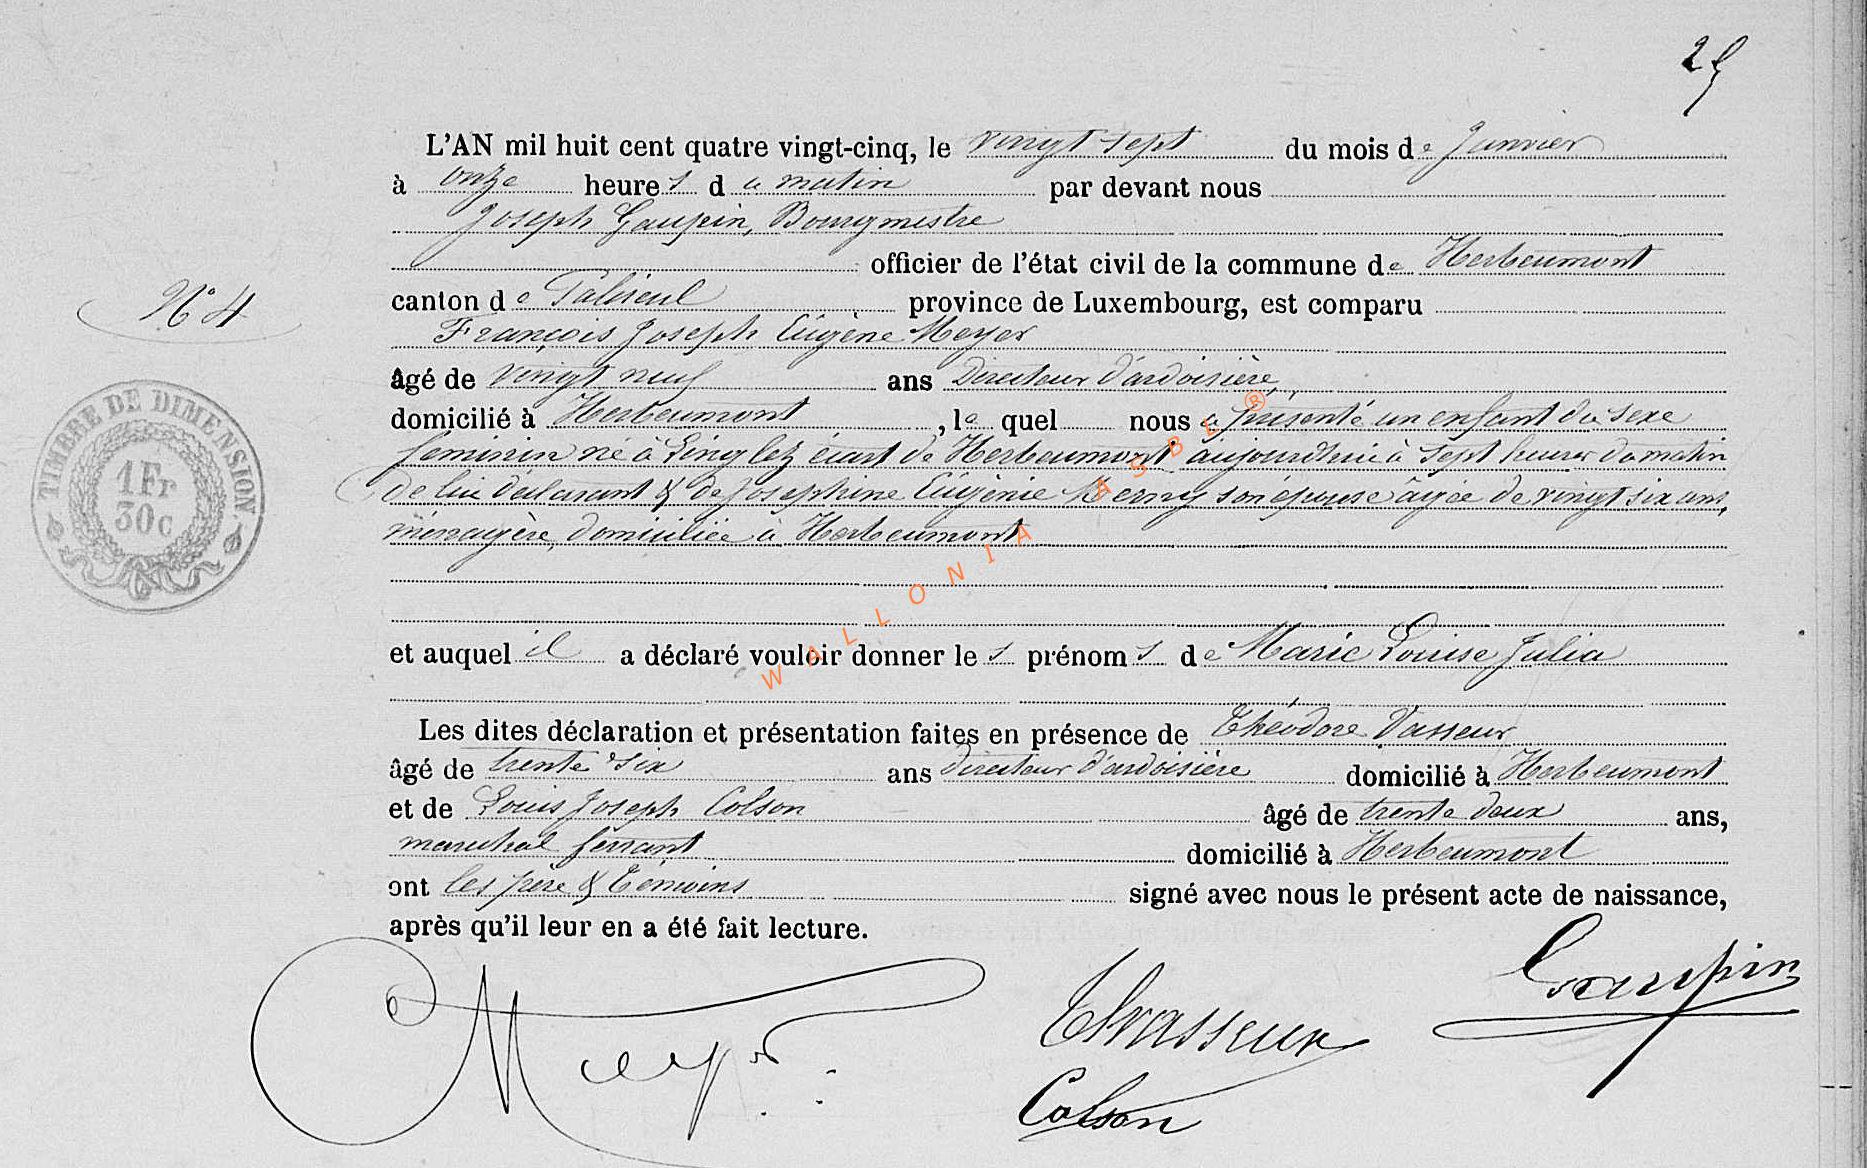 25
L'AN mil huit cent quatre vingt-cinq, le vingt sept du mois de Janvier
à onze heures du matin par devant nous
Joseph Gaupin, Bourgmestre
officier de l'état civil de la commune de Herbeumont
N° 4
canton de Paliseul province de Luxembourg, est comparu
François Joseph Eugène Meyer
âgé de vingt neuf ans Directeur d'ardoisière,
domicilié à Herbeumont, lequel nous a présenté un enfant du sexe
féminin né à Linglez écart de Herbeumont aujourd'hui à sept heures du matin
de lui déclarant & de Joséphine Eugénie son épouse âgée de vingt six ans,
ménagère, domiciliée à Herbeumont
et auquel il a déclaré vouloir donner les prénoms de Marie Louise Julia
Les dites déclaration et présentation faites en présence de Théodore Vasseur
âgé de trente six ans directeur d'ardoisière domicilié à Herbeumont
et de Louis Joseph Colson âgé de trente deux ans,
maréchal ferrant domicilié à Herbeumont
ont les père & témoins signé avec nous le présent acte de naissance,
après qu'il leur en a été fait lecture.
TIMBRE DE DIMENSION
1 Fr
30c
WALLONIA ASBL ®
Gaupin
Meyer
Th Vasseur
Colson